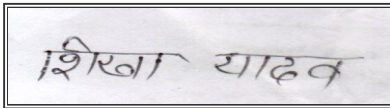 शिखा यादव